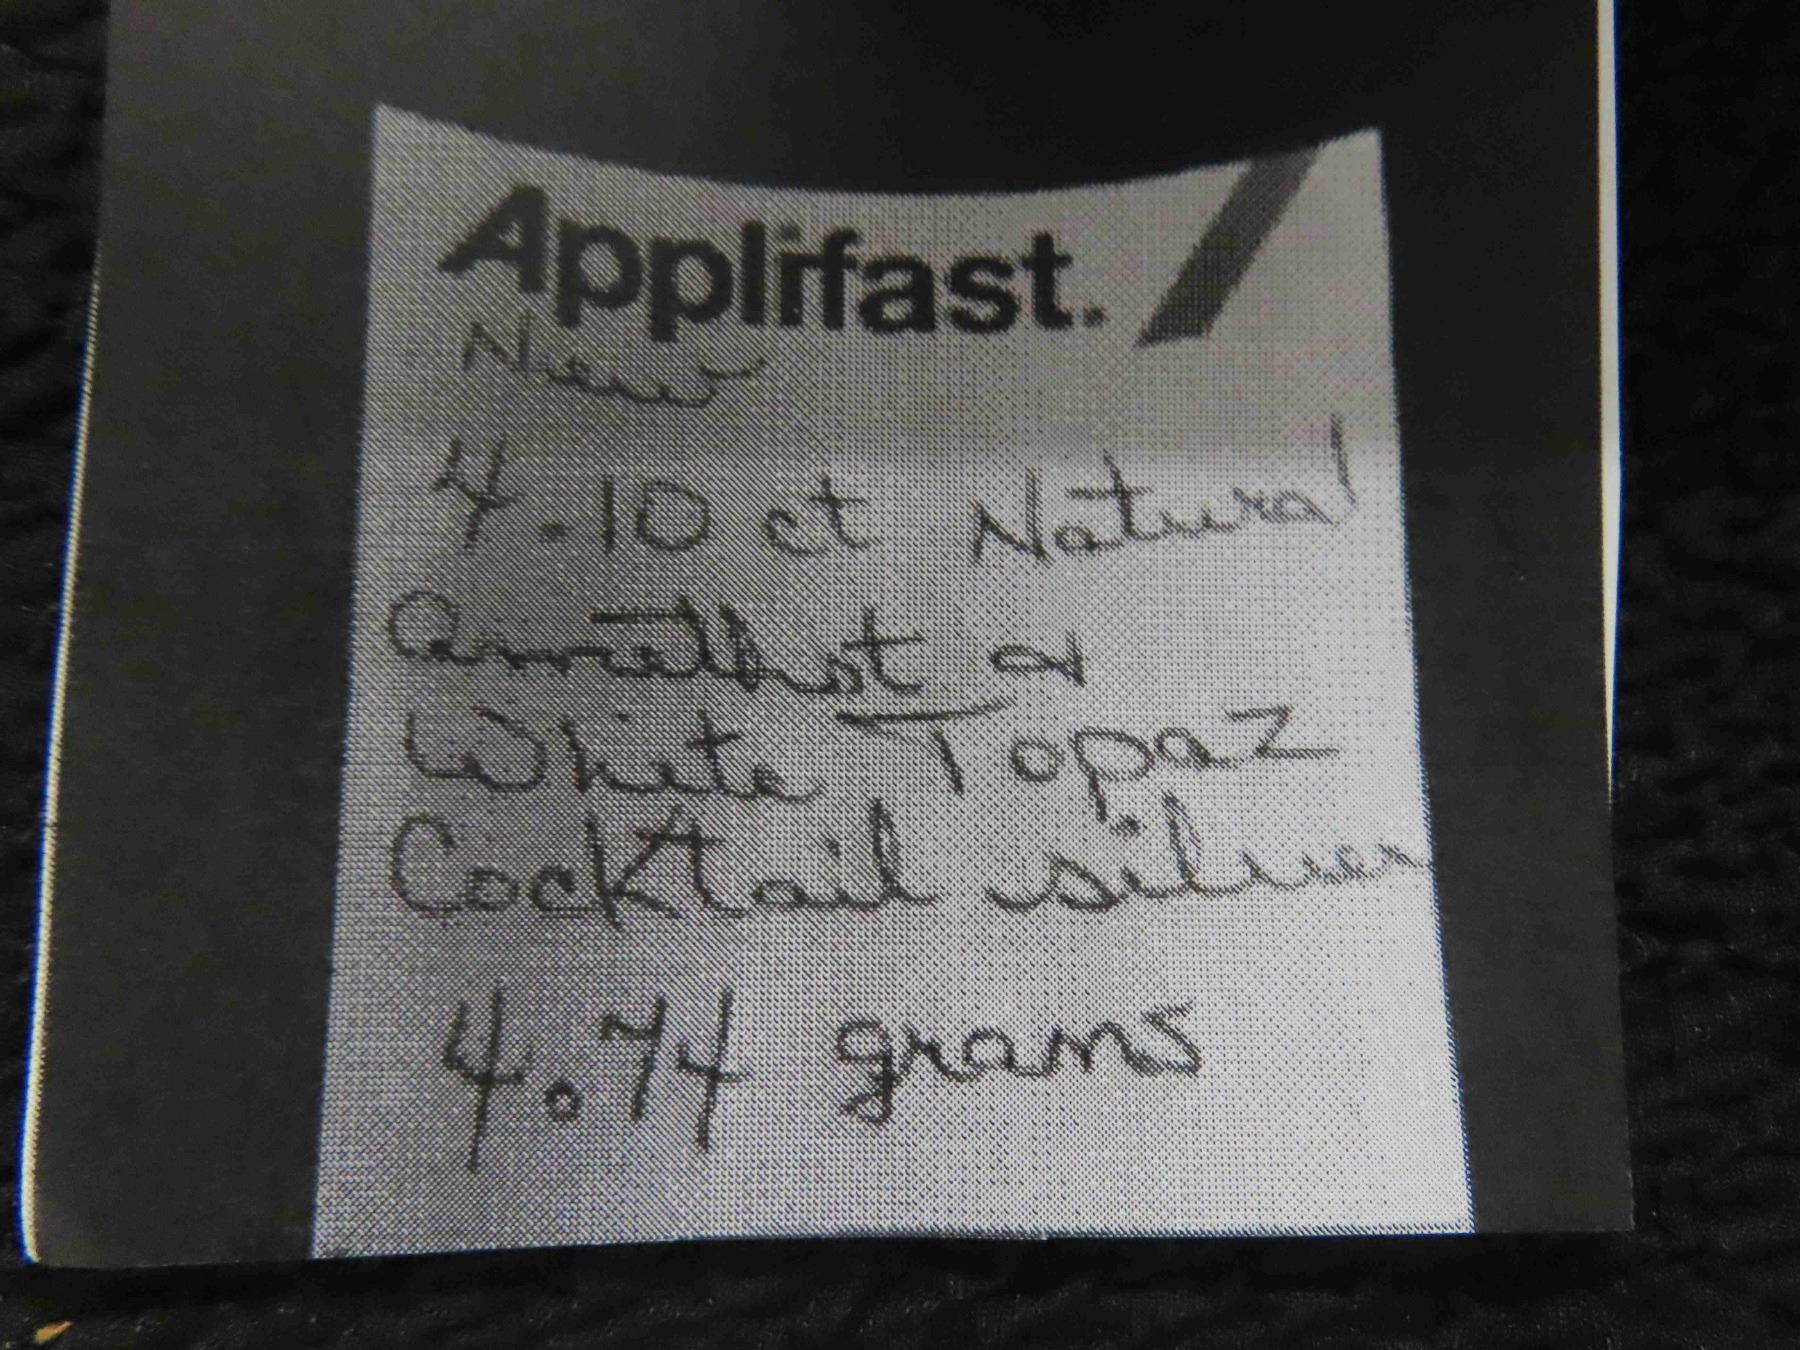 Applifast.
New
4.10 ct Natural
Amethst &
White Topaz
Cocktail silver
4.74 grams